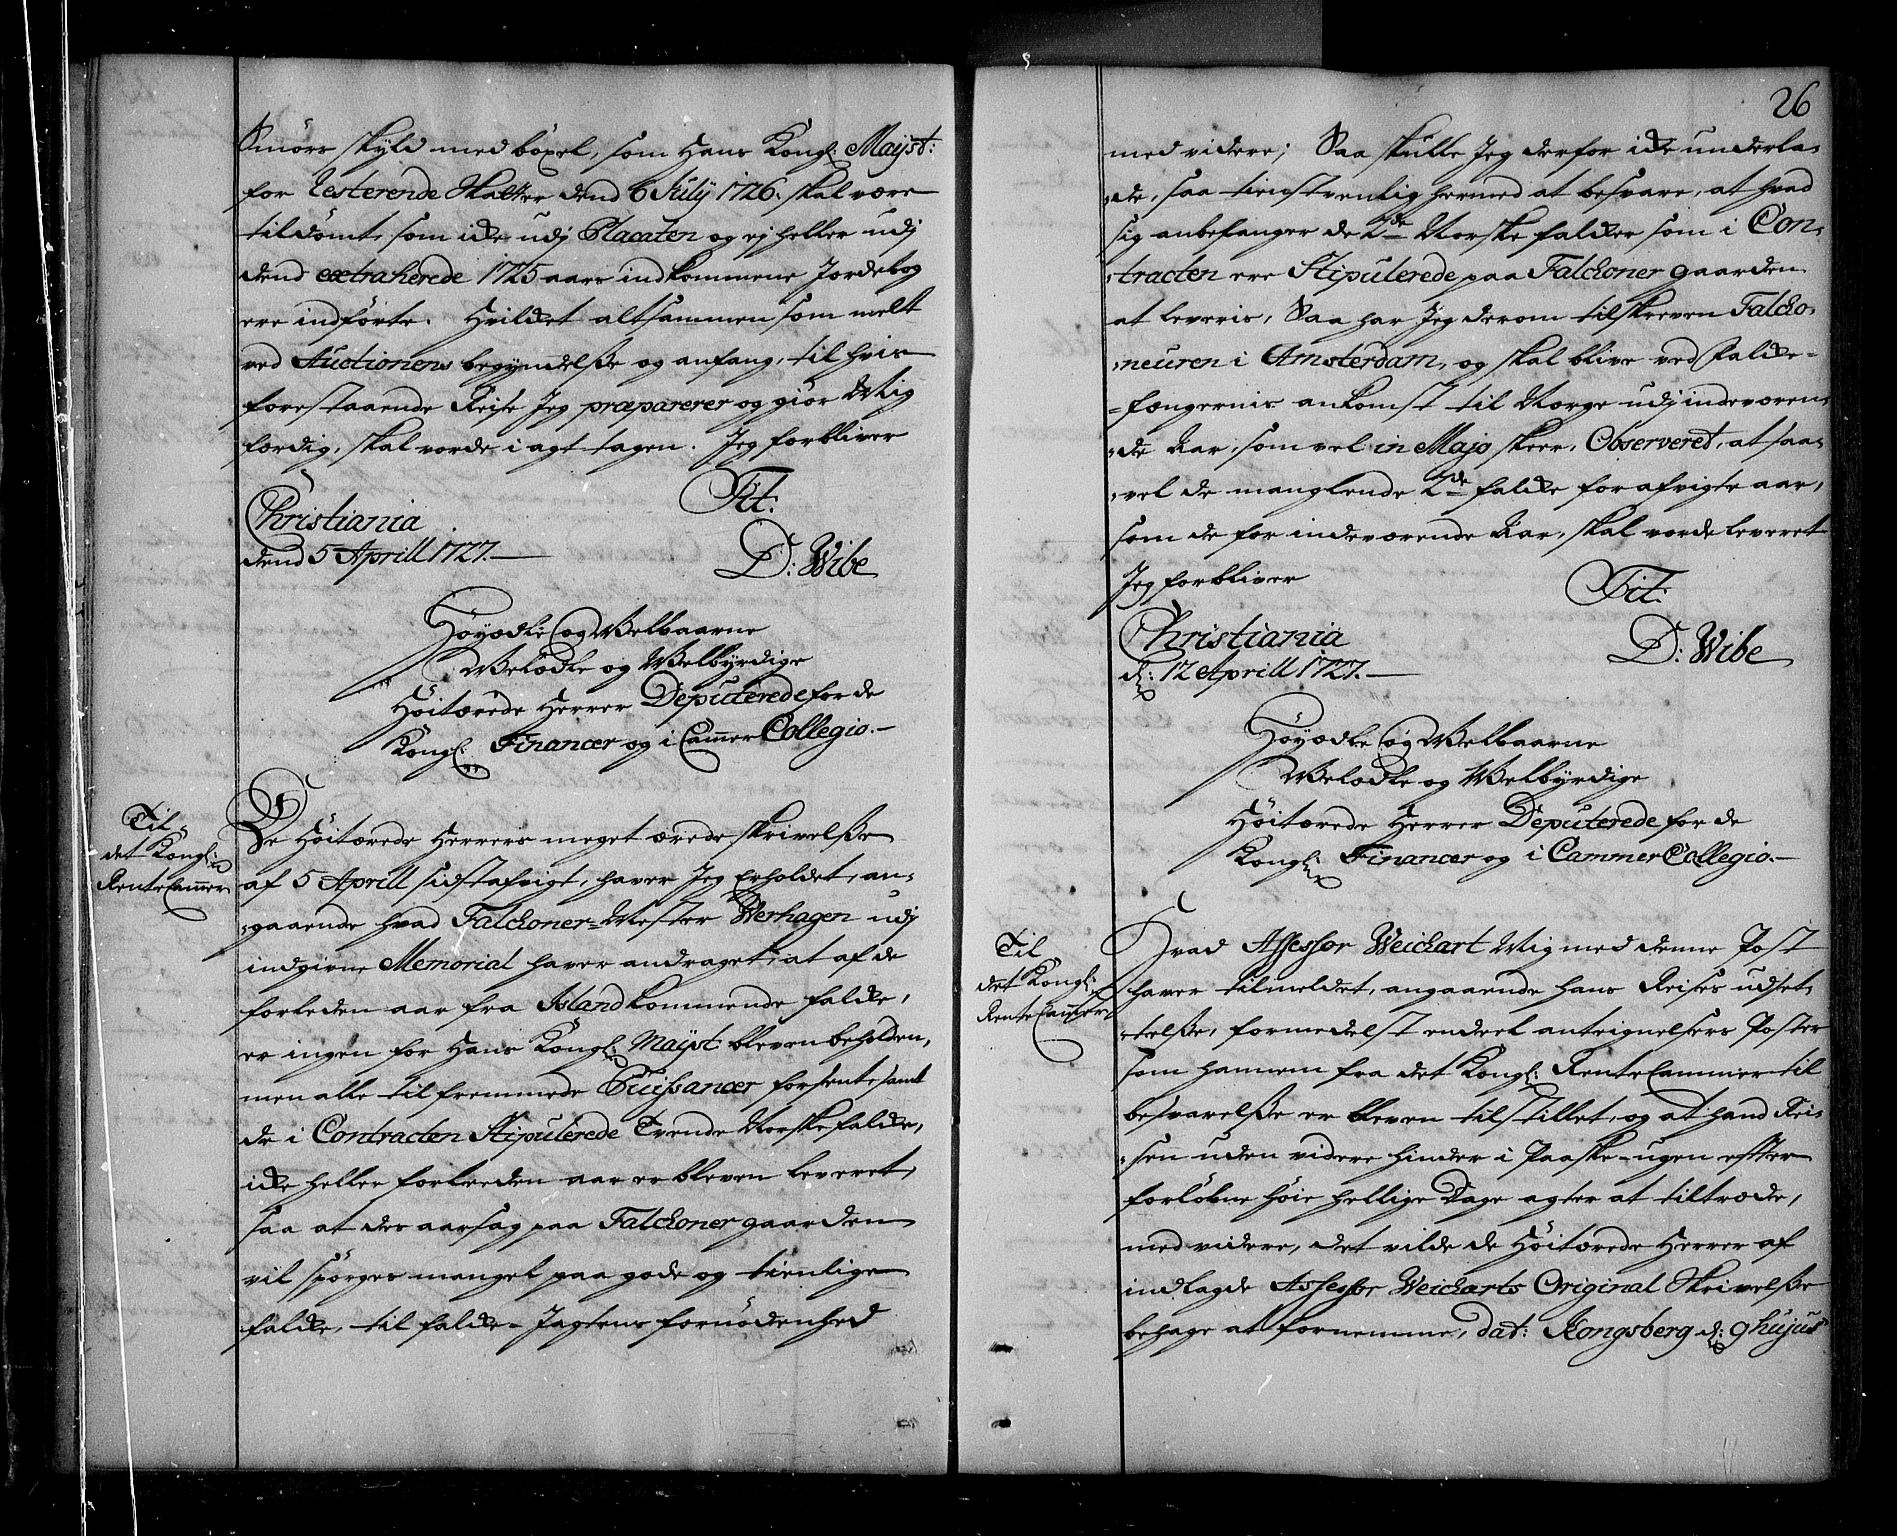 Smørs skyld med böxel, som Hans Kongl: Mayst:
for resterende Skatter dend 6 July 1726. skal være
tildömt, som icke udj Placaten og ej heller udj
dend extraherede 1725 aars indkommene Jordebog
ere indförte. Hvilcket altsammen som melt
ved Auctionens begyndelße og anfang, til hvis
forestaaende Reise Jeg præparerer og giør Mig
færdig, skal vorde i agt tagen. Jeg forbliver
Tit:
Christiania
dend 5 Aprill 1727.
D: Wibe
Höyædle og Welbaarne
Welædle og Welbyrdige
Höitærede Herrer Deputerede for de
Kongl: Financer og i Cammer Collegio.
Til
det Kongl:
Rente Cammer
De Höitærede Herrers meget ærede skrivelße
af 5 Aprill sidstafvigt, haver Jeg Erholdet, an-
gaaende hvad Falckoner-Mester Verhagen udj
indgivne Memorial haver andraget, at af de
forleden aar fra Island kommende falcke,
er ingen for Hans Kongl: Mayst bleven beholden,
men alle til fremmede Puissancer forsent, samt
de i Contracten Stipulerede Tvende Norske falcke,
icke heller forleeden aar er bleven leveret,
saa at des aarsag paa Falckoner gaarden
vil spörges mangel paa gode og tienlige
falcke, til falcke-Jagtens fornödenhed
26
med videre; Saa skulle Jeg derfor icke underla-
de, saa tienstvenlig hermed at besvare, at hvad
sig anbelanger de 2de Norske falcker som i Con-
tracten ere Stipulerede paa Falckoner gaarden
at leveris, Saa har Jeg derom tilskreven Falcko-
neuren i Amsterdam, og skal blive ved Falcke-
fængernis ankomst til Norge udj indeværen-
de Aar, som vel in Majo skeer, Observeret, at saa-
vel de manglende 2de falcke for afvigte aar,
som de for indeværende Aar, skal vorde leveret
Jeg forbliver
Tit:
Christiania
d: 12 Aprill 1727.
D: Wibe
Höyædle og Welbaarne
Welædle og Welbyrdige
Höitærede Herrer Deputerede for de
Kongl: Financer og i Cammer Collegio.
Til
det Kongl:
Rente Cammer
Hvad Assessor Weickart Mig med denne Post
haver tilmeldet, angaaende hans Reises udset-
telße, formedelst endeel antegnelsers Poster
som hannem fra det Kongl: Rente Cammer til
besvarelße er bleven tilstillet, og at hand Rei-
sen uden videre hinder i Paaske-ugen efter
forløbne høie hellige Dage agter at tiltræde,
med videre, det vilde de Höitærede Herrer af
indlagde Assessor Weickarts Original Skrivelße
behage at fornemme, dat: Kongsberg d: 9 hujus